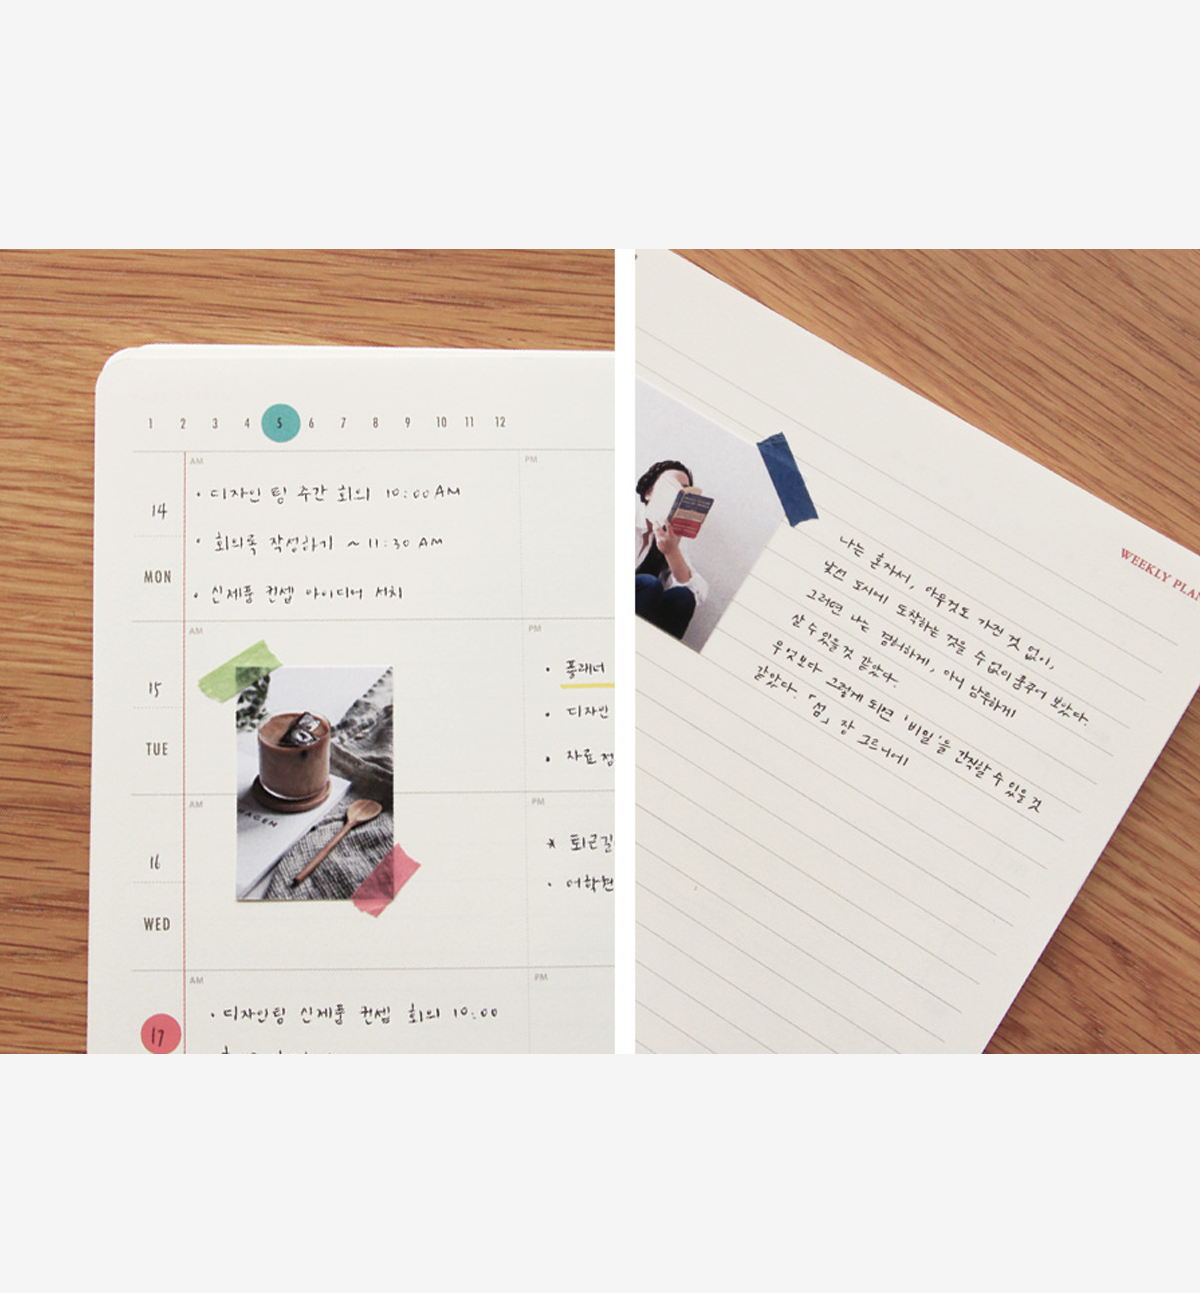 1 2 3 4 5 6 7 8 9 10 11 12
AM
PM
14
MON
• 디자인 팀 주간 회의 10:00 AM
• 회의록 작성하기 ~ 11:30 AM
• 신제품 컨셉 아이디어 서치
AM
PM
15
TUE
• 플래너
• 디자인
• 자료 정
AM
PM
16
WED
* 퇴근길
• 어학원
AM
PM
17
• 디자인팀 신제품 컨셉 회의 10:00
AGEN
WEEKLY PLAN
나는 혼자서, 아무것도 가진 것 없이,
낯선 도시에 도착하는 것을 수없이 꿈꾸어 보았다.
그러면 나는 겸허하게, 아니 남루하게
살 수 있을 것 같았다.
무엇보다 그렇게 되면 '비밀'을 간직할 수 있을 것
같았다. 「섬」 장 그르니에